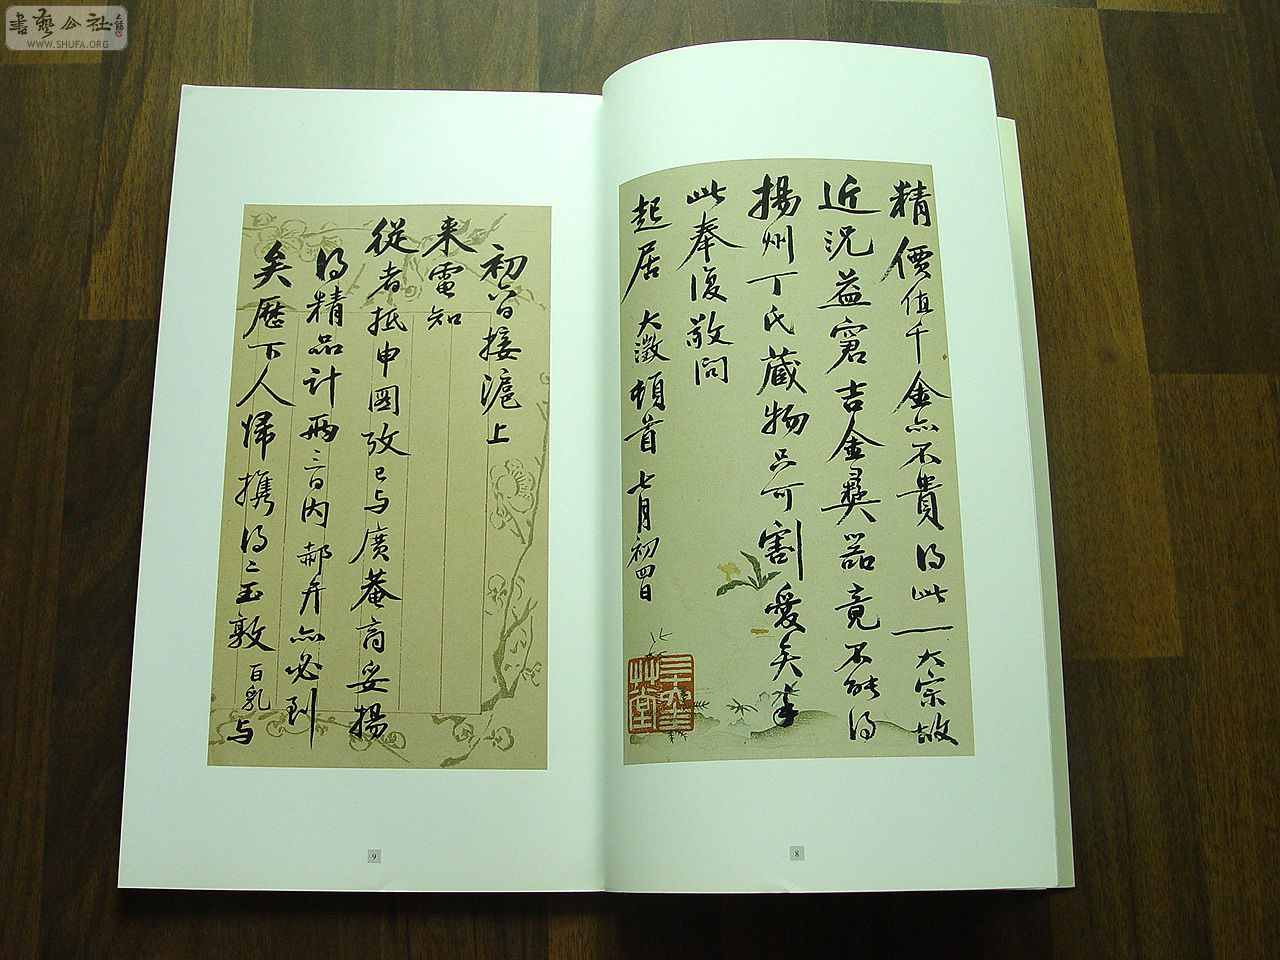 書藝公社
WWW.SHUFA.ORG
精價值千金亦不貴得此一大宗故
近況益窘吉金彝器竟不能得
揚州丁氏藏物只可割愛矣手
此奉復敬問
起居 大澂頓首 七月初四日
8
初
接滬上
来電知
從者抵申圖致已与廣菴商妥揚
得精品計兩三日内郝弁亦必到
矣歷下人歸攜得二玉敦百乳与
9